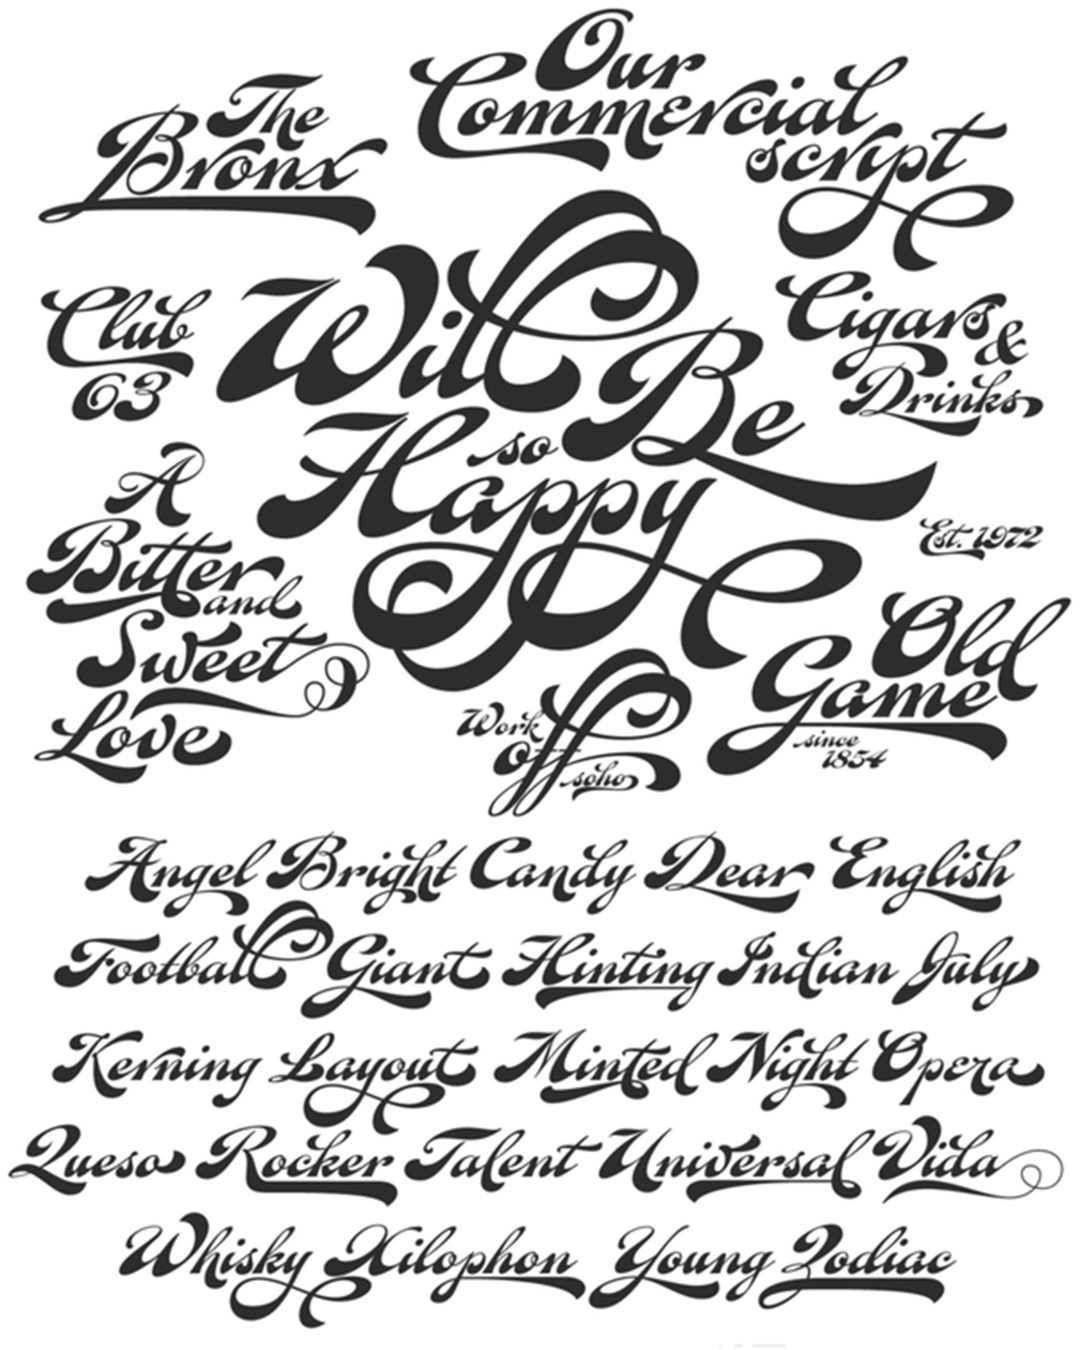 The
Bronx
Our
Commercial
script
Club
63
Will
Be
so
Happy
Cigars &
Drinks
A
Bitter
and
Sweet
Love
Est. 1972
Work
Off
soho
Old
Game
since
1854
Angel Bright Candy Dear English
Football Giant Hinting Indian July
Kerning Layout Minted Night Opera
Queso Rocker Talent Universal Vida
Whisky Xilophon Young Zodiac